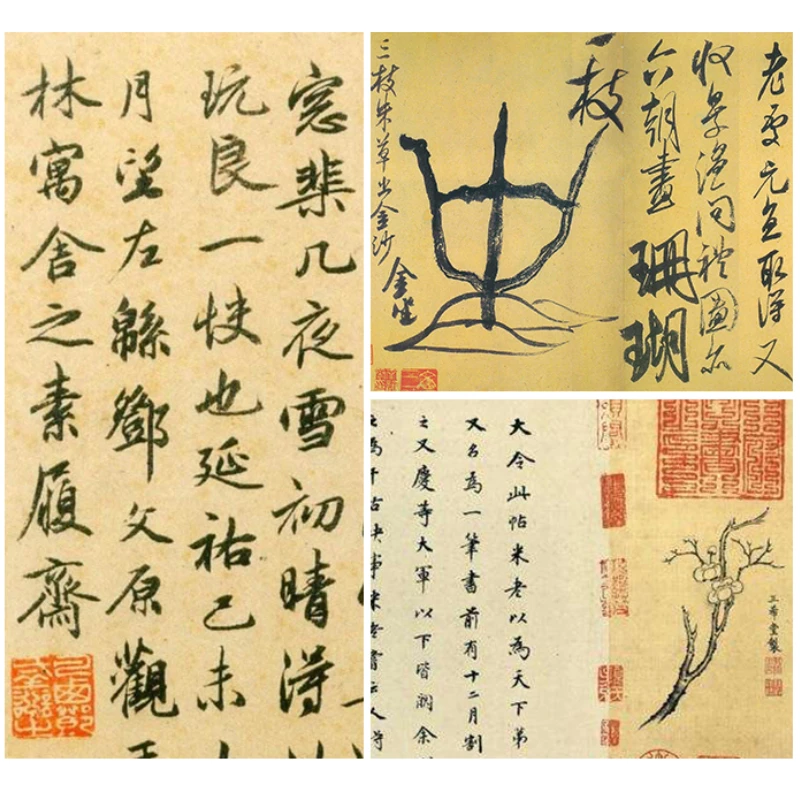 窓棐几夜雪初晴得
玩良一快也延祐己未
月望左緜鄧文原觀
林寓舍之素履齋
老處元直取得又
收景溫問禮圖亦
六朝畫珊瑚
一枝
金坐
三枝朱草出金沙
三希堂製
大令此帖米老以為天下第
又名為一筆書前有十二月割
之又慶等大軍以下皆調余